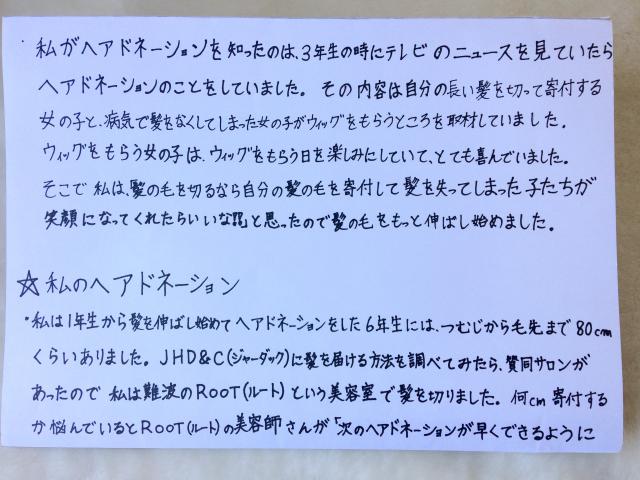 ・私がヘアドネーションを知ったのは、3年生の時にテレビのニュースを見ていたら
ヘアドネーションのことをしていました。その内容は自分の長い髪を切って寄付する
女の子と、病気で髪をなくしてしまった女の子がウィッグをもらうところを取材していました。
ウィッグをもらう女の子は、ウィッグをもらう日を楽しみにしていて、とても喜んでいました。
そこで私は、髪の毛を切るなら自分の髪の毛を寄付して髪を失ってしまった子たちが
笑顔になってくれたらいいな!!」と思ったので髪の毛をもっと伸ばし始めました。
☆私のヘアドネーション
・私は1年生から髪を伸ばし始めてヘアドネーションをした6年生には、つむじから毛先まで80cm
くらいありました。JHD&C(ジャーダック)に髪を届ける方法を調べてみたら、賛同サロンが
あったので私は難波のROOT(ルート)という美容室で髪を切りました。何cm寄付する
か悩んでいるとROOT(ルート)の美容師さんが「次のヘアドネーションが早くできるように